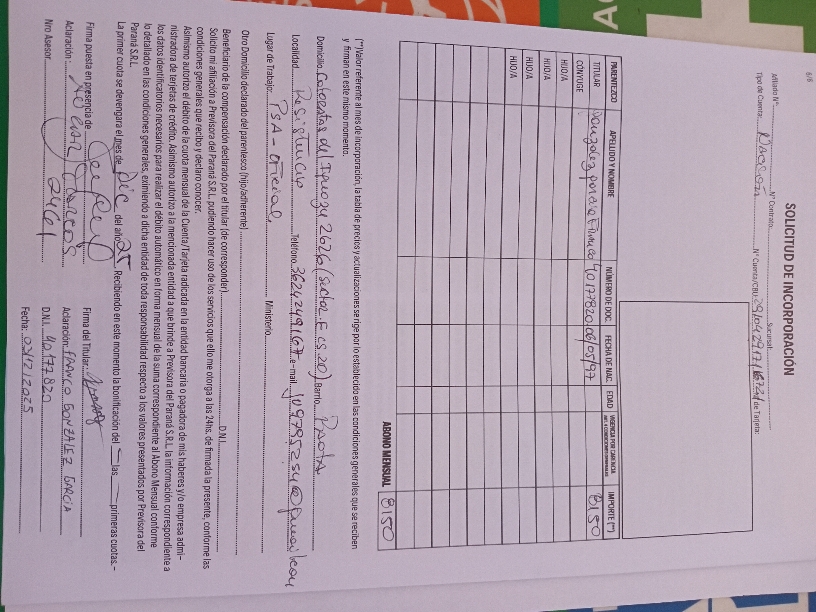 6/6
SOLICITUD DE INCORPORACIÓN
Afiliado N°: N° Contrato: Sucursal:
Tipo de Cuenta: N° Cuenta/CBU: de Tarjeta:
PARENTEZCO APELLIDO Y NOMBRE NÚMERO DE DOC. FECHA DE NAC. EDAD VIGENCIA POR CARENCIA IMPORTE (*)
TITULAR Gonzalez Franco 40177820 06/05/97 8150
CÓNYUGE
HIJO/A
HIJO/A
HIJO/A
HIJO/A
ABONO MENSUAL 8150
(*)Valor referente al mes de incorporación, la tabla de precios y actualizaciones se rige por lo establecido en las condiciones generales que se reciben
y firman en este mismo momento.
Domicilio: del 2626 (Sector: F CS 20) Barrio:
Localidad: Resistencia Teléfono: 3624249167 e-mail:
Lugar de Trabajo: PSA - Oficial Ministerio:
Otro Domicilio declarado del parentesco (hijo/adherente)
Beneficiario de la compensación declarado por el titular (de corresponder). D.N.I.
Solicito mi afiliación a Previsora del Paraná S.R.L. pudiendo hacer uso de los servicios que ello me otorga a las 24hs. de firmada la presente, conforme las
condiciones generales que recibo y declaro conocer.
Asimismo autorizo el débito de la cuota mensual de la Cuenta/Tarjeta radicada en la entidad bancaria o pagadora de mis haberes y/o empresa admi-
nistradora de tarjetas de crédito. Asimismo autorizo a la mencionada entidad a que brinde a Previsora del Paraná S.R.L. la información correspondiente a
los datos identificatorios necesarios para realizar el débito automático en forma mensual de la suma correspondiente al Abono Mensual conforme
lo detallado en las condiciones generales, eximiendo a dicha entidad de toda responsabilidad respecto a los valores presentados por Previsora del
Paraná S.R.L.
La primer cuota se devengara el mes de Dic del año 25. Recibiendo en este momento la bonificación del — las — primeras cuotas.-
Firma puesta en presencia de Firma del Titular:
Aclaración: Aclaración: FRANCO GONZALEZ GARCIA
Nro Asesor 2461 D.N.I. 40.177.820
Fecha: 03/12/2025